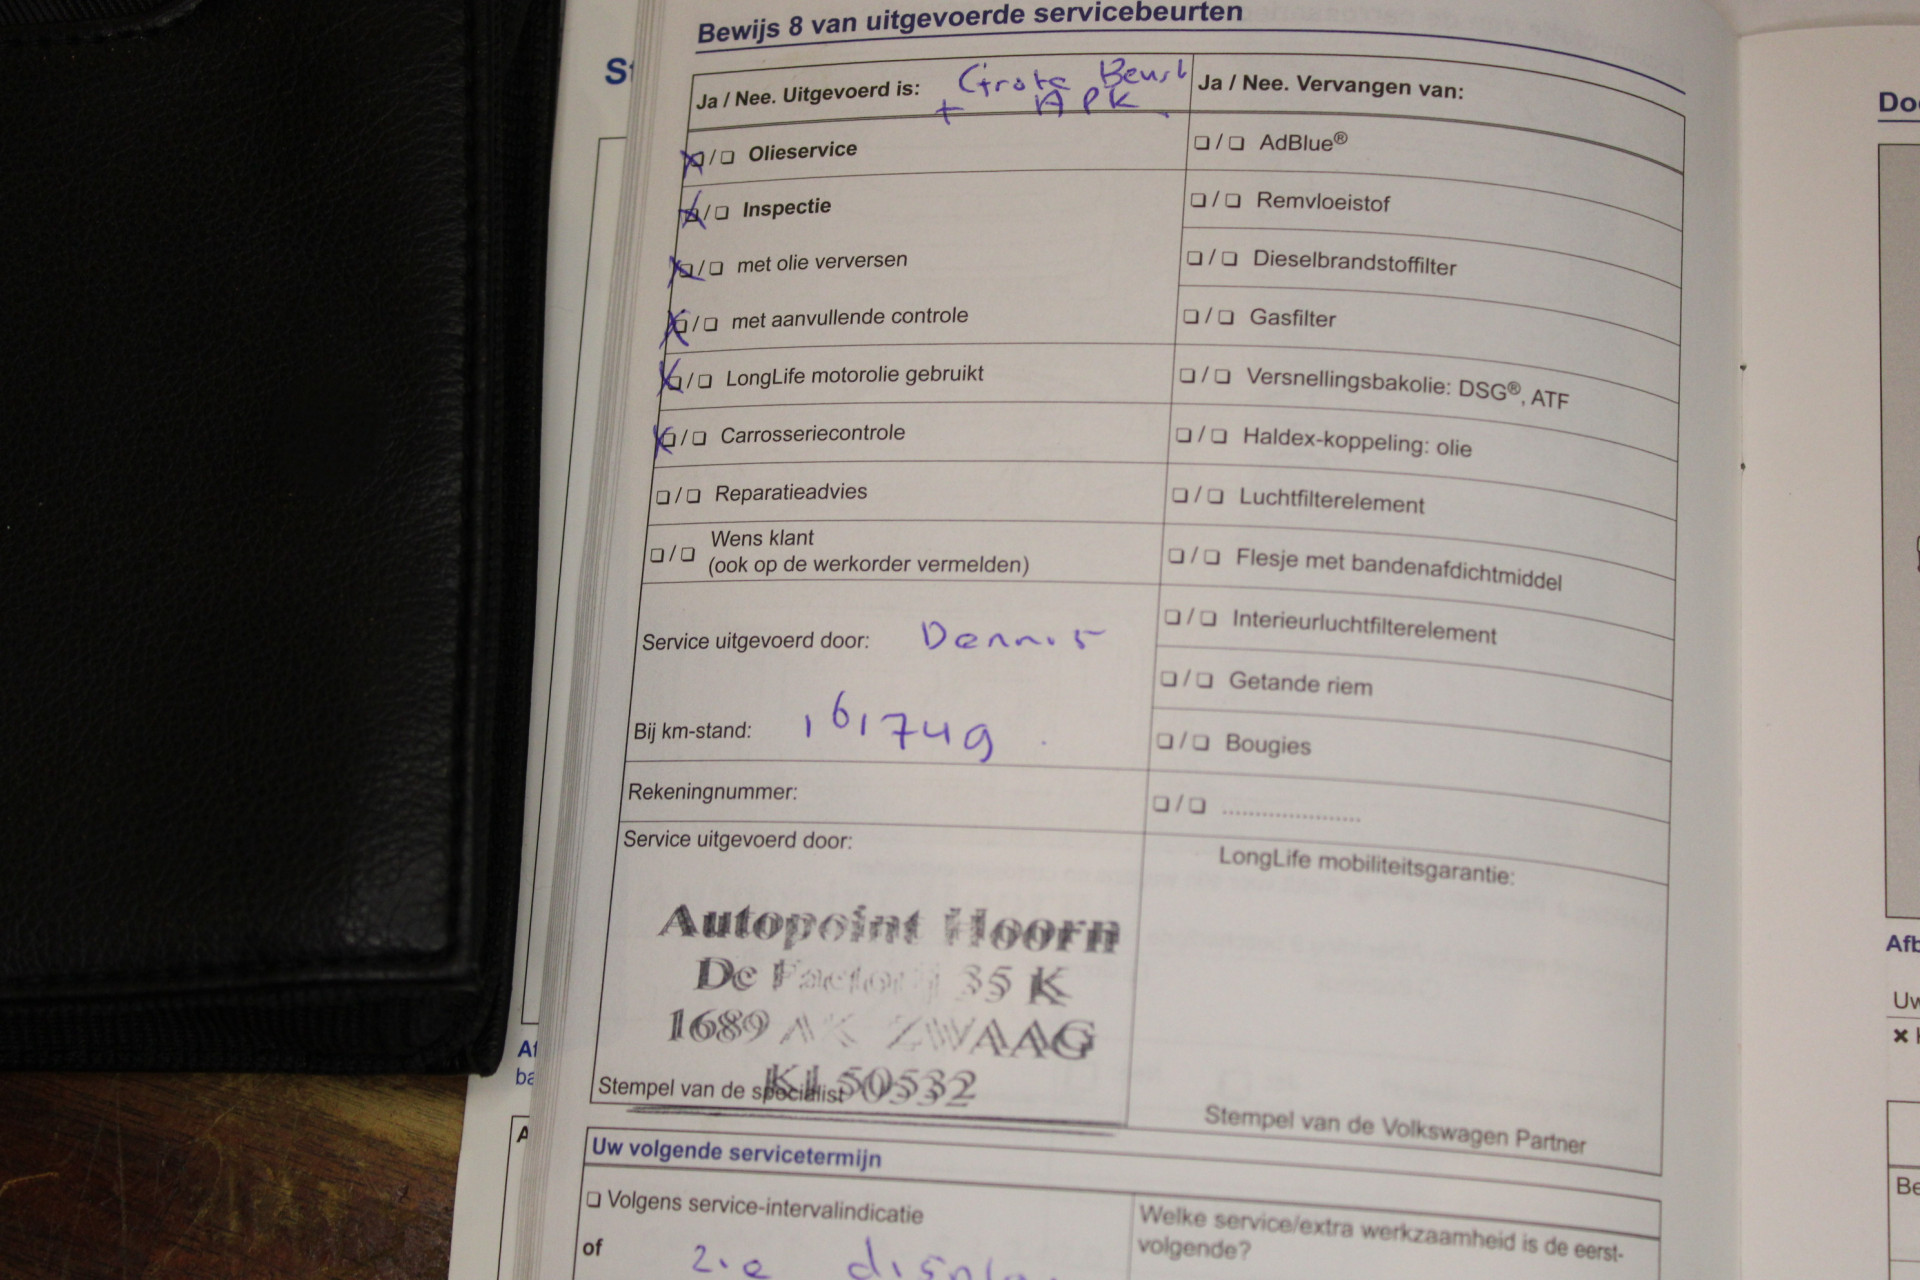 Bewijs 8 van uitgevoerde servicebeurten
Ja / Nee. Uitgevoerd is: Grote Beurt
+ APK
☒/❏ Olieservice
☒/❏ Inspectie
☒/❏ met olie verversen
☒/❏ met aanvullende controle
☒/❏ LongLife motorolie gebruikt
☒/❏ Carrosseriecontrole
❏/❏ Reparatieadvies
❏/❏ Wens klant
(ook op de werkorder vermelden)
Service uitgevoerd door: Dennis
Bij km-stand: 161749
Rekeningnummer:
Service uitgevoerd door:
Autopoint Hoorn
De Factorij 35 K
1689 AK ZWAAG
KI 50532
Stempel van de specialist
Ja / Nee. Vervangen van:
❏/❏ AdBlue®
❏/❏ Remvloeistof
❏/❏ Dieselbrandstoffilter
❏/❏ Gasfilter
❏/❏ Versnellingsbakolie: DSG®, ATF
❏/❏ Haldex-koppeling: olie
❏/❏ Luchtfilterelement
❏/❏ Flesje met bandenafdichtmiddel
❏/❏ Interieurluchtfilterelement
❏/❏ Getande riem
❏/❏ Bougies
❏/❏ .....................
LongLife mobiliteitsgarantie:
Stempel van de Volkswagen Partner
Uw volgende servicetermijn
❏ Volgens service-intervalindicatie
of zie display
Welke service/extra werkzaamheid is de eerst-
volgende?